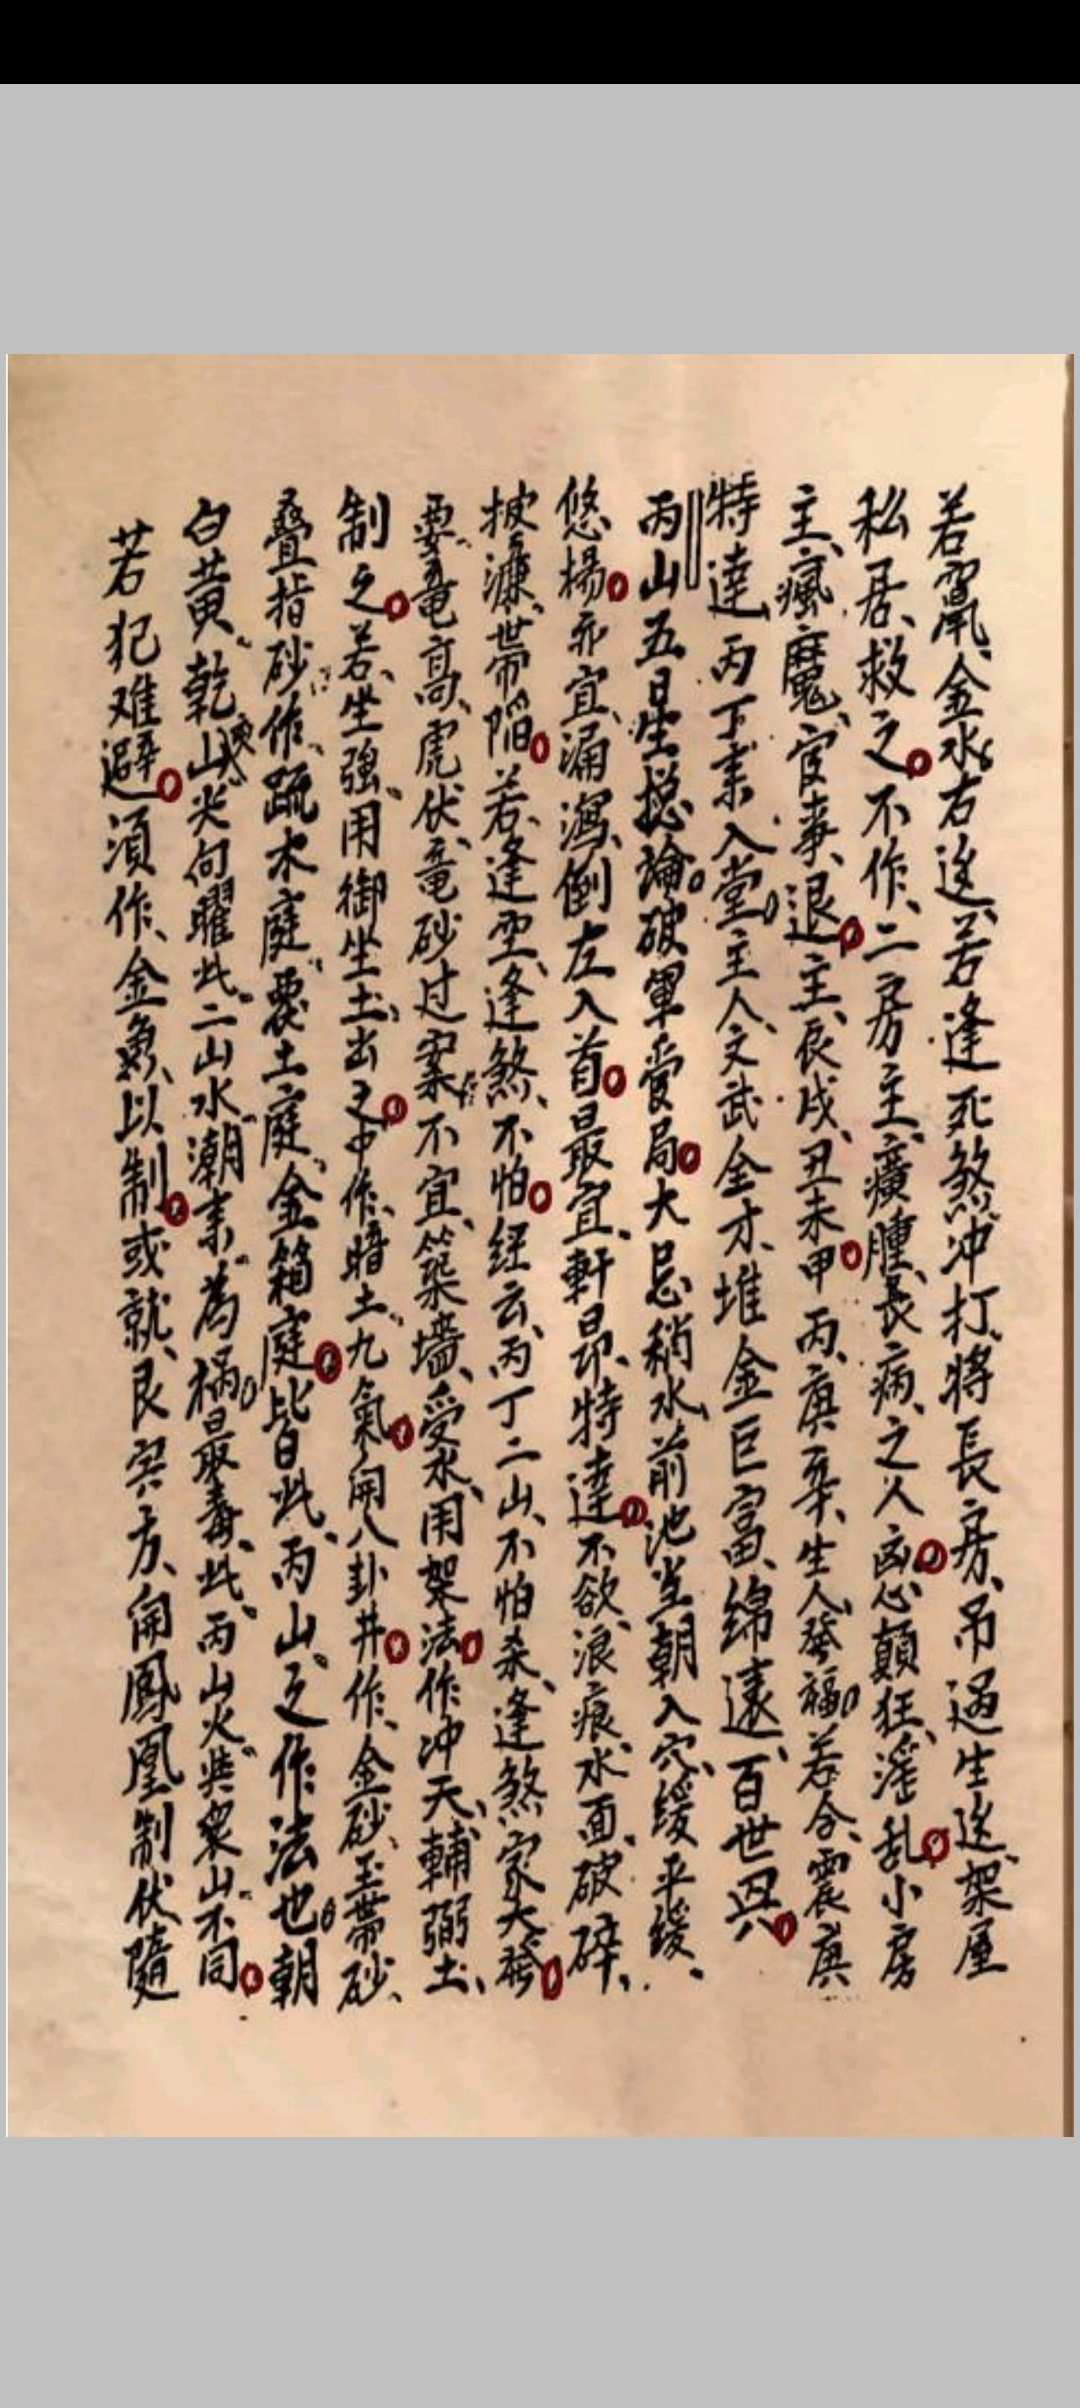 若窩風、金水右送、若逢死煞冲打、將長房、吊過生送、架屋
私居、救之。不作、二房主、癀腫、長病、之人凶。顛狂、淫乱。小房
主、瘋魔、官事、退。主、辰戌、丑未甲。丙、庚辛、生人發福。若合、震庚
特達、丙丁來入堂。主人、文武全才、堆金巨富、綿遠、百世興。
丙山五星總論。破軍受局。大忌稍水、前池当朝入穴、緩平緩、
悠揚。亦宜、漏瀉、倒左入首。最宜、軒昂、特達。不欲、浪痕、水面、破碎、
披濂、帶陷。若、逢空、逢煞、不怕。経云、丙丁二山、不怕杀、逢煞家大發。
要竜高、虎伏、竜砂过案、不宜、築墻、受水、用架法。作冲天、輔弼土、
制之。若、坐強、用御坐土、出之。中作、暗土、九氣。開八卦井。作、金砂、玉帶砂、
叠指砂、作、疏水庭、裹土庭、金箱庭。皆此、丙山、之作法也。朝
白黄、乾山尖向曜此、二山水、潮来、為禍。最毒、此、丙山火、與衆山、不同。
若犯难避。須作、金魚、以制。或就、艮寅方、開鳳凰制伏隨